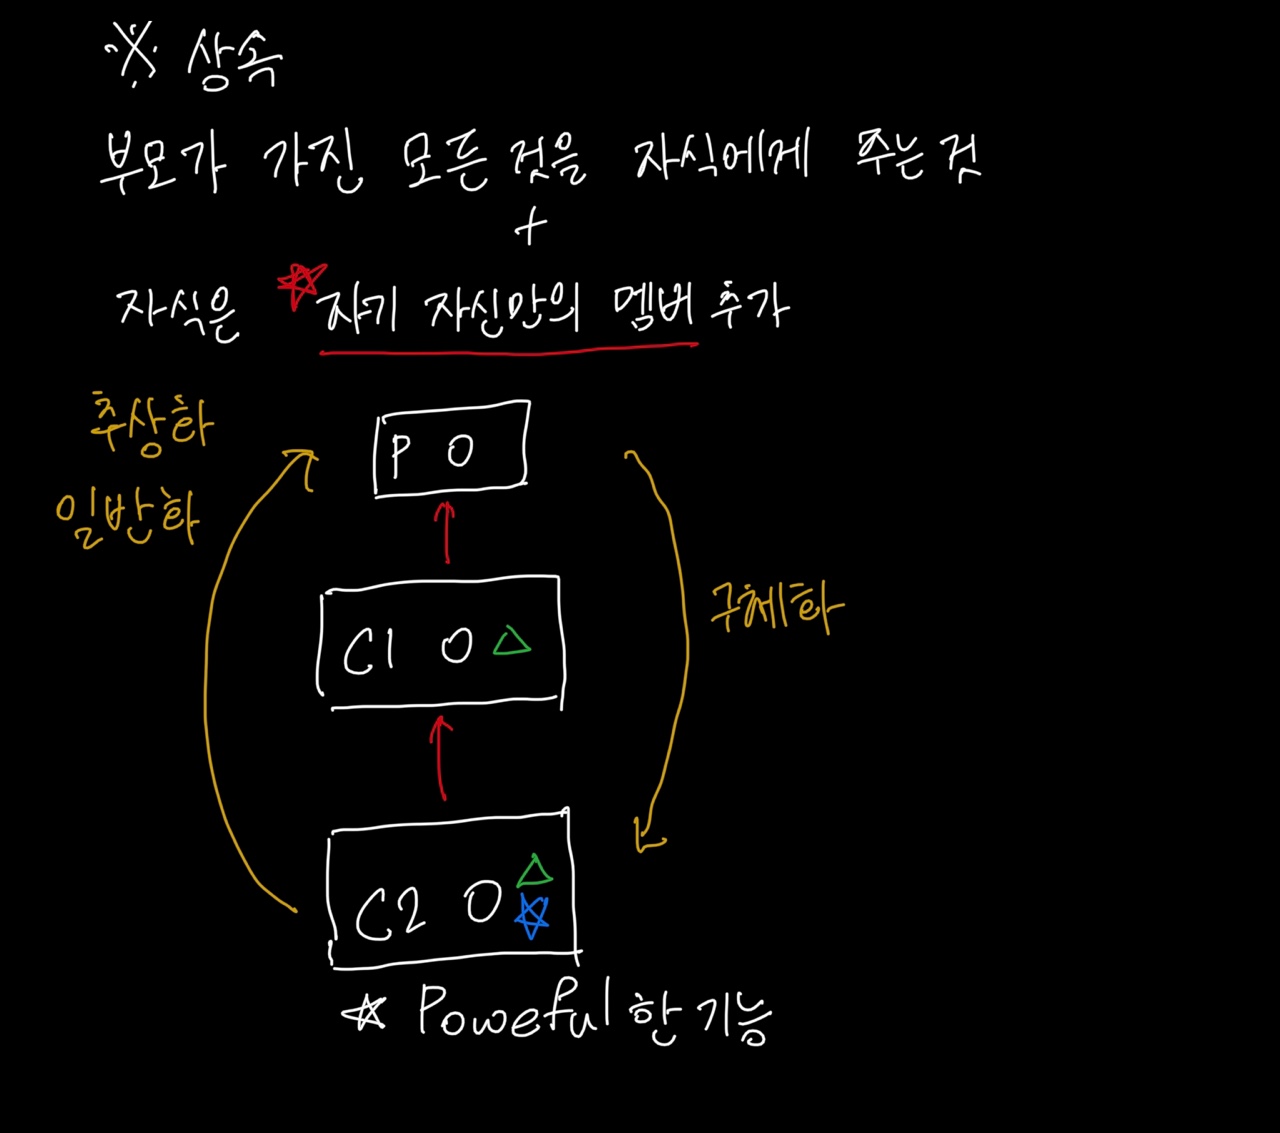 ※ 상속
부모가 가진 모든 것을 자식에게 주는 것
+
자식은 ☆자기 자신만의 멤버 추가
추상화
일반화
P O
C1 O △
구체화
C2 O △
☆
☆ Poweful 한 기능